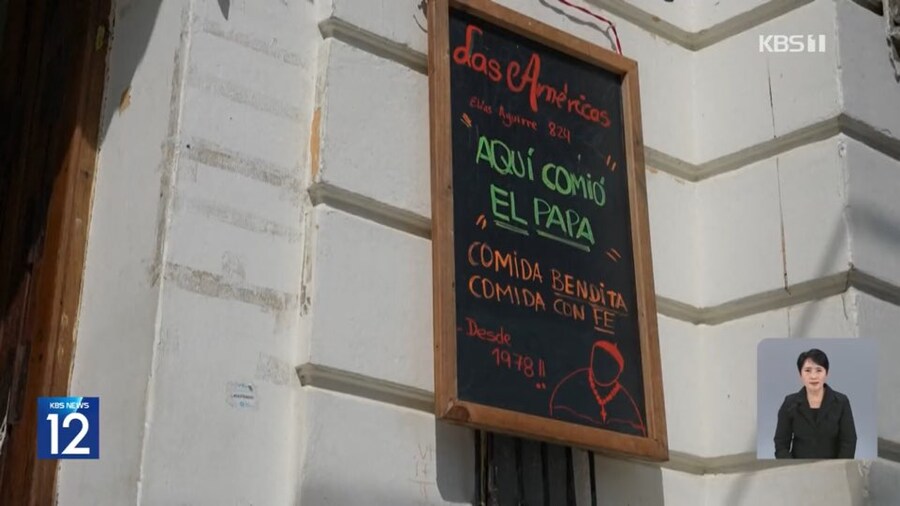 das Américas
Elías Aguirre 824
"AQUÍ COMIÓ
EL PAPA"
COMIDA BENDITA
COMIDA CON FE
- Desde
1978!!
KBS 1
KBS NEWS
12